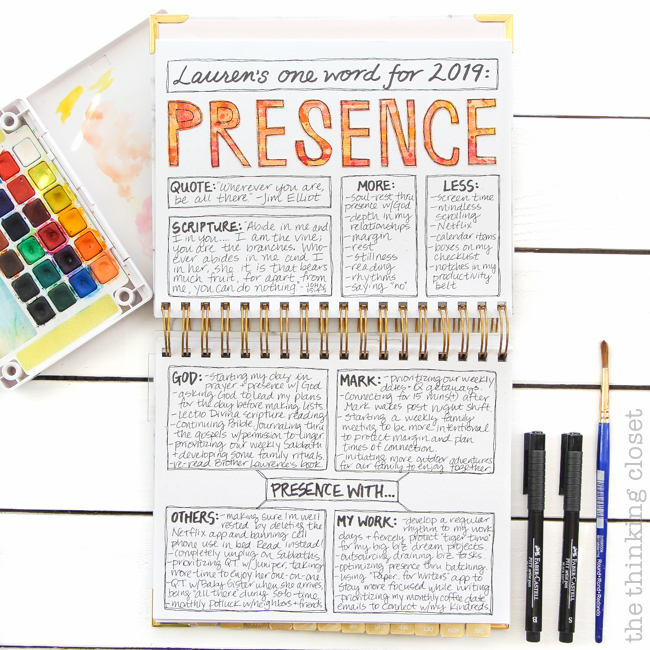 Lauren's one word for 2019:
PRESENCE
QUOTE: "Wherever you are,
be all there" - Jim Elliot
SCRIPTURE: "Abide in me and
I in you.... I am the vine;
you are the branches. Who-
ever abides in me and I
in her, she it is that bears
much fruit, for apart from
me, you can do nothing." -
MORE:
-soul-rest thru
presence w/God
-depth in my
relationships
-margin
-rest
-stillness
-reading
-rhythms
-saying "no"
LESS:
-screen time
-mindless
scrolling
-Netflix
-calendar items
-boxes on my
checklist
-notches in my
productivity
belt
GOD: -starting my day in
prayer + presence w/ God
-asking God to lead my plans
for the day before making lists
-Lectio Divina scripture reading
-continuing Bible Journaling thru
the gospels w/permission to linger
-prioritizing our weekly Sabbath
+ developing some family rituals
-re-read Brother Lawrence's book
MARK: -prioritizing our weekly
dates + getaways
-connecting for 15 min(s) after
Mark wakes post night shift
-starting a weekly family
meeting to be more intentional
to protect margin and plan
times of connection.
-initiating more outdoor adventures
for our family to enjoy together
PRESENCE WITH...
OTHERS: -making sure I'm well
rested by deleting the
Netflix app and banning cell
phone use in bed. Read instead!
-completely unplug on Sabbaths
-prioritizing QT w/Juniper, taking
more time to enjoy her one-on-one.
QT w/Baby Sister when she arrives,
being "all there" during solo time.
-monthly potluck w/neighbors + friends
MY WORK: -develop a regular
rhythm to my work
days + fiercely protect "tiger time"
for my big biz dream projects.
-outsourcing draining biz tasks.
-optimizing presence thru batching.
-using "Paper for Writers" app to
stay more focused while writing
-prioritizing my monthly coffee date
emails to connect w/my kindreds.
FABER-CASTELL
PITT
B
FABER-CASTELL
PITT
S
Round-Rond-Redondo
the thinking closet